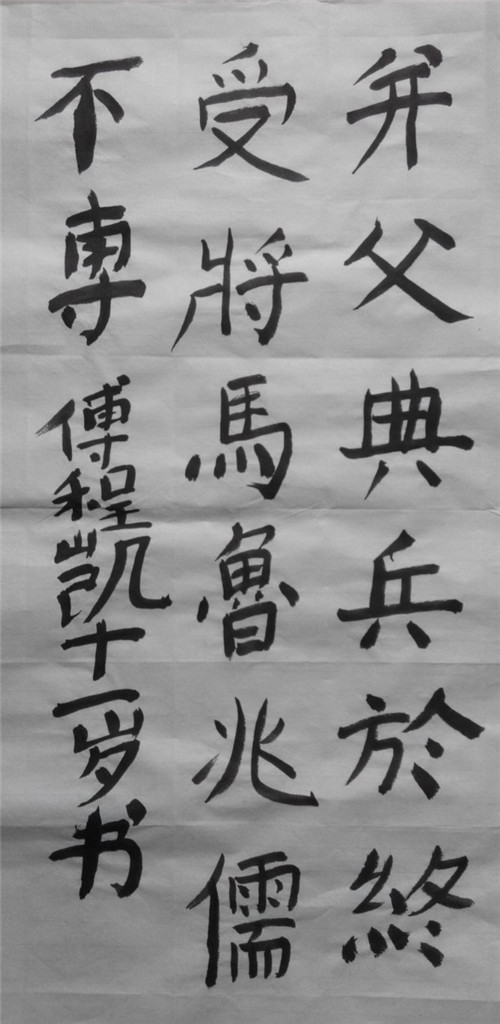 弁父典兵於終
受將馬魯兆儒
不専傅程凯十一岁书